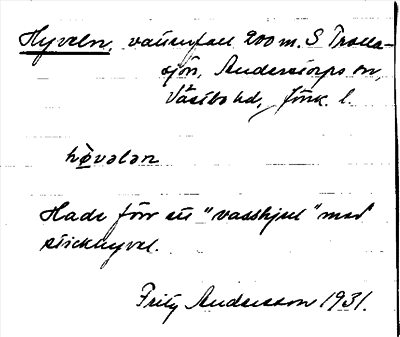 Hyveln, vattenfall 200 m. S Trolla-
sjön, Anderstorps sn,
Västbo hd, Jönk. l.
hỳvələn
Hade förr ett "vadshjul" med
stickhyvel.
Fritz Andersson 1931.